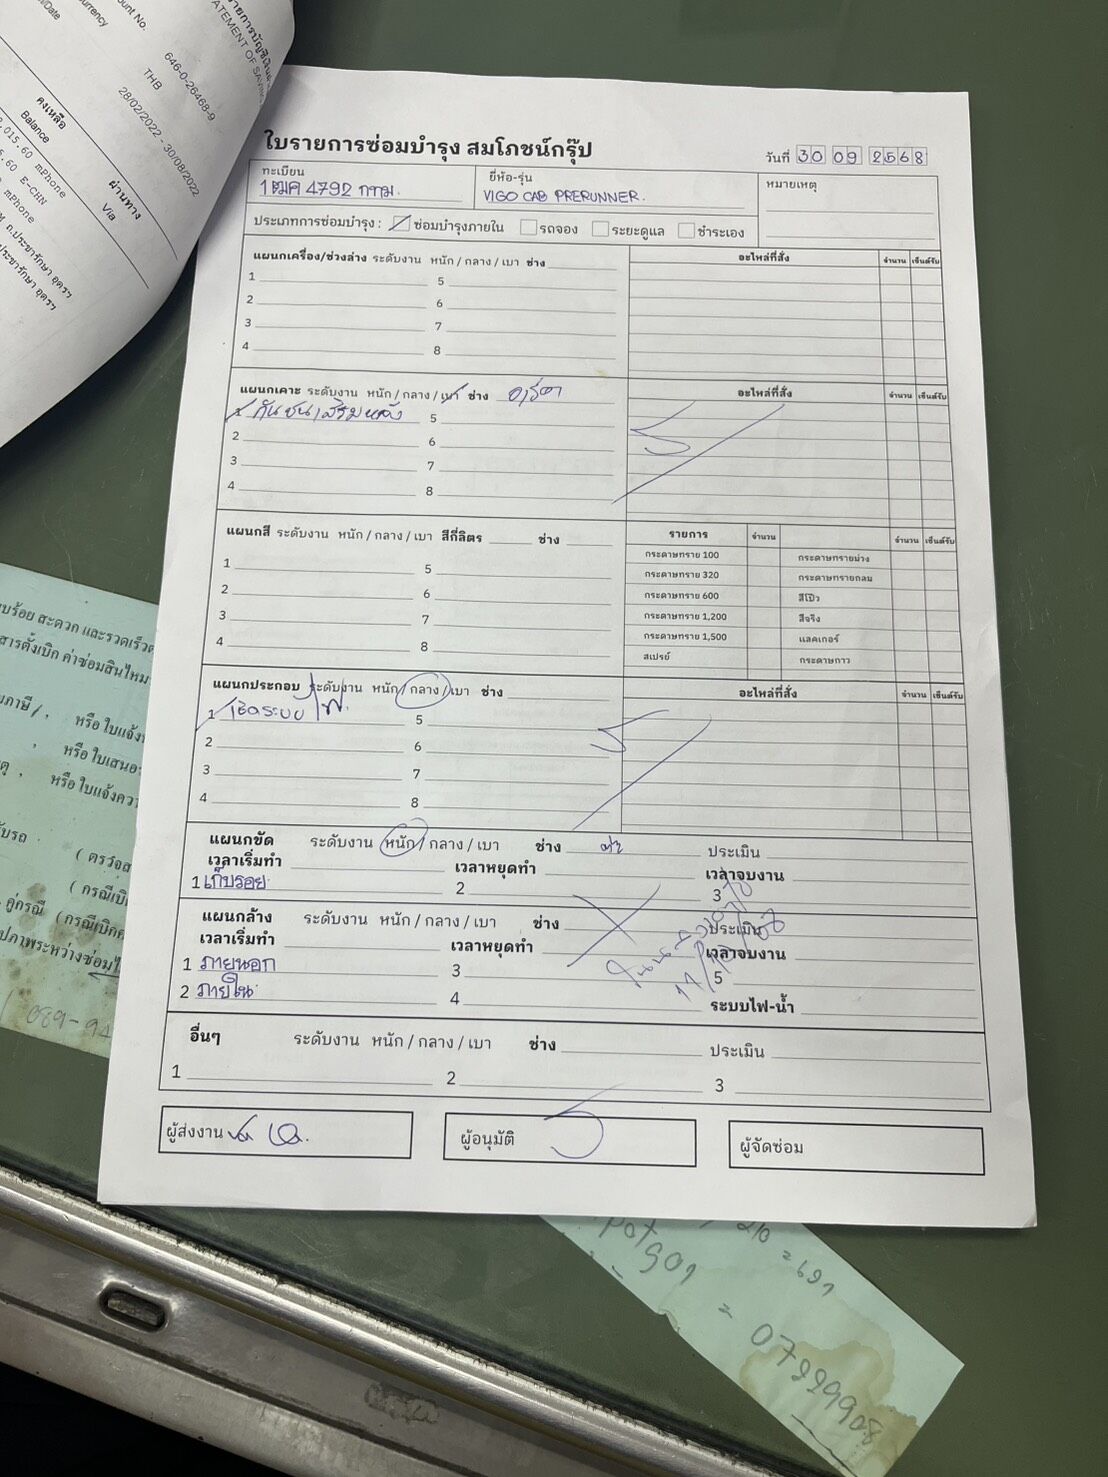 รายการบัญชีเงินฝ
ATEMENT OF SAVIN
unt No.
646-0-26468-9
urrency
THB
/Date
28/02/2022 - 30/08/2022
คงเหลือ
Balance
ผ่านทาง
Via
,015.60 mPhone
5.60 E-CHN
mPhone
mPhone
ใบรายการซ่อมบำรุง สมโภชน์กรุ๊ป
วันที่ 30 09 2568
ทะเบียน
1ฒศ 4792 กทม.
ยี่ห้อ-รุ่น
VIGO CAB PRERUNNER.
หมายเหตุ
ประเภทการซ่อมบำรุง : ซ่อมบำรุงภายใน รถจอง ระยะดูแล ชำระเอง
แผนกเครื่อง/ช่วงล่าง ระดับงาน หนัก / กลาง / เบา ช่าง
อะไหล่ที่สั่ง จำนวน เซ็นต์รับ
1 5
2 6
3 7
4 8
แผนกเคาะ ระดับงาน หนัก / กลาง / เบา ช่าง
อะไหล่ที่สั่ง จำนวน เซ็นต์รับ
1 กันชนเสริมหลัง 5
2 6
3 7
4 8
แผนกสี ระดับงาน หนัก / กลาง / เบา สีกี่ลิตร ช่าง
รายการ จำนวน จำนวน เซ็นต์รับ
1 5
2 6
3 7
4 8
กระดาษทราย 100 กระดาษทรายม่วง
กระดาษทราย 320 กระดาษทรายกลม
กระดาษทราย 600 สีโป๊ว
กระดาษทราย 1,200 สีจริง
กระดาษทราย 1,500 แลคเกอร์
สเปรย์ กระดาษกาว
แผนกประกอบ ระดับงาน หนัก / กลาง / เบา ช่าง
อะไหล่ที่สั่ง จำนวน เซ็นต์รับ
1 เช็คระบบไฟ. 5
2 6
3 7
4 8
แผนกขัด ระดับงาน หนัก / กลาง / เบา ช่าง ประเมิน
เวลาเริ่มทำ เวลาหยุดทำ เวลาจบงาน
1 เก็บรอย 2 3
แผนกล้าง ระดับงาน หนัก / กลาง / เบา ช่าง ประเมิน
เวลาเริ่มทำ เวลาหยุดทำ เวลาจบงาน
1 ภายนอก 3 5
2 ภายใน 4 ระบบไฟ-น้ำ
อื่นๆ ระดับงาน หนัก / กลาง / เบา ช่าง ประเมิน
1 2 3
ผู้ส่งงาน
ผู้อนุมัติ
ผู้จัดซ่อม
บร้อย สะดวก และรวดเร็ว
สารตั้งเบิก ค่าซ่อมสินไหม
หรือ ใบแจ้ง
หรือ ใบเสนอ
หรือ ใบแจ้งควา
( ตรวจส
( กรณีเบิ
คู่กรณี (กรณีเบิก
ปภาพระหว่างซ่อม
089-94